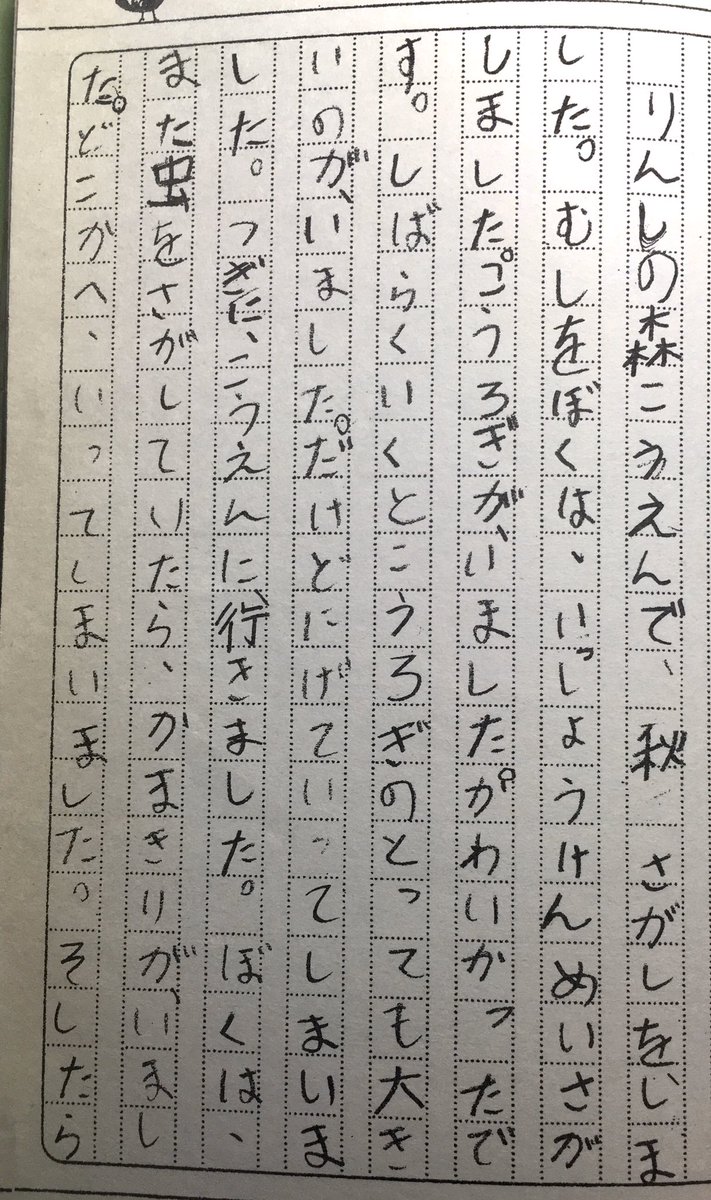 りんしの森こうえんで、秋さがしをしま
した。むしをぼくは、いっしょうけんめいさが
しました。こうろぎが、いました。かわいかったで
す。しばらくいくとこうろぎのとっても大き
いのが、いました。だけどにげていってしまいま
した。つぎに、こうえんに、行きました。ぼくは、
また虫をさがしていたら、かまきりが、いまし
た。どこかへ、いってしまいました。そしたら